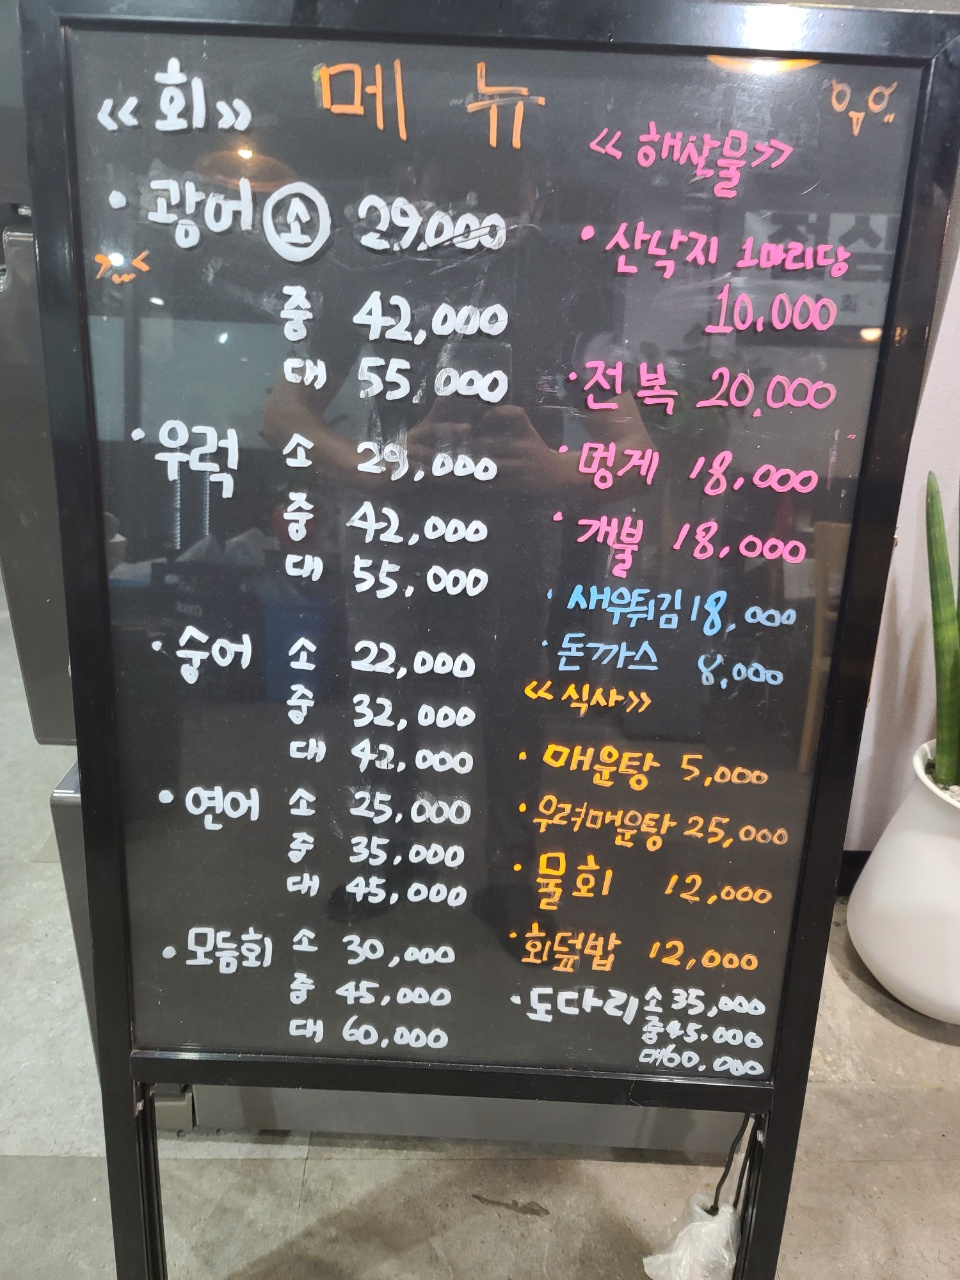 메뉴
<<회>>
· 광어 소 29,000
중 42,000
대 55,000
· 우럭 소 29,000
중 42,000
대 55,000
· 숭어 소 22,000
중 32,000
대 42,000
· 연어 소 25,000
중 35,000
대 45,000
· 모듬회 소 30,000
중 45,000
대 60,000
<<해산물>>
· 산낙지 1마리당
10,000
· 전복 20,000
· 멍게 18,000
· 개불 18,000
· 새우튀김 18,000
· 돈까스 8,000
<<식사>>
· 매운탕 5,000
· 우럭매운탕 25,000
· 물회 12,000
· 회덮밥 12,000
· 도다리 소 35,000
중 45,000
대 60,000